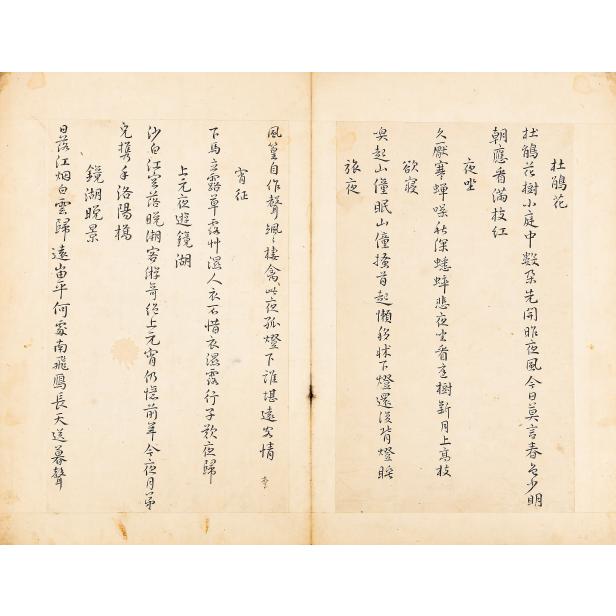 杜鵑花
杜鵑花樹小庭中數朶先開昨夜風今日莫言春色少明
朝應看滿枝紅
夜坐
久厭寒蟬噪秋深蟋蟀悲夜坐看庭樹新月上高枝
欲寢
奐起山僮眠山僮搔首起懶移牀下燈還復背燈睡
旅夜
風篁自作聲颯〻棲禽此夜孤燈下誰堪遠客情
宵征
下馬立露草露艸濕人衣不惜衣濕露行子欲夜歸
上元夜遊鏡湖
沙白江空落晚潮客游奇絶上元宵仍憶前年今夜月弟
兄携手洛陽橋
鏡湖晚景
日落江烟白雲歸遠岫平何處南飛鴈長天送暮聲